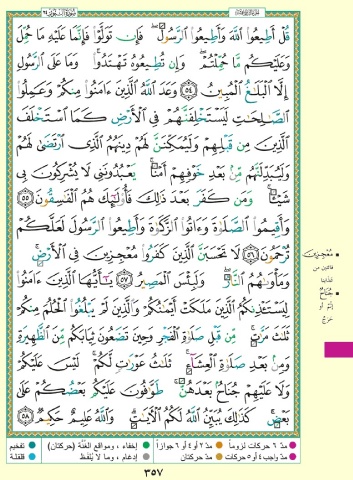 قُلْ أَطِيعُوا۟ ٱللَّهَ وَأَطِيعُوا۟ ٱلرَّسُولَ ۖ فَإِن تَوَلَّوْا۟ فَإِنَّمَا عَلَيْهِ مَا حُمِّلَ
وَعَلَيْكُم مَّا حُمِّلْتُمْ ۖ وَإِن تُطِيعُوهُ تَهْتَدُوا۟ ۚ وَمَا عَلَى ٱلرَّسُولِ
إِلَّا ٱلْبَلَٰغُ ٱلْمُبِينُ ٥٤ وَعَدَ ٱللَّهُ ٱلَّذِينَ ءَامَنُوا۟ مِنكُمْ وَعَمِلُوا۟
ٱلصَّٰلِحَٰتِ لَيَسْتَخْلِفَنَّهُمْ فِى ٱلْأَرْضِ كَمَا ٱسْتَخْلَفَ
ٱلَّذِينَ مِن قَبْلِهِمْ وَلَيُمَكِّنَنَّ لَهُمْ دِينَهُمُ ٱلَّذِى ٱرْتَضَىٰ لَهُمْ
وَلَيُبَدِّلَنَّهُم مِّنۢ بَعْدِ خَوْفِهِمْ أَمْنًا ۚ يَعْبُدُونَنِى لَا يُشْرِكُونَ بِى
شَيْـًٔا ۚ وَمَن كَفَرَ بَعْدَ ذَٰلِكَ فَأُو۟لَٰٓئِكَ هُمُ ٱلْفَٰسِقُونَ ٥٥
وَأَقِيمُوا۟ ٱلصَّلَوٰةَ وَءَاتُوا۟ ٱلزَّكَوٰةَ وَأَطِيعُوا۟ ٱلرَّسُولَ لَعَلَّكُمْ
تُرْحَمُونَ ٥٦ لَا تَحْسَبَنَّ ٱلَّذِينَ كَفَرُوا۟ مُعْجِزِينَ فِى ٱلْأَرْضِ ۚ
وَمَأْوَىٰهُمُ ٱلنَّارُ ۖ وَلَبِئْسَ ٱلْمَصِيرُ ٥٧ يَٰٓأَيُّهَا ٱلَّذِينَ ءَامَنُوا۟
لِيَسْتَـْٔذِنكُمُ ٱلَّذِينَ مَلَكَتْ أَيْمَٰنُكُمْ وَٱلَّذِينَ لَمْ يَبْلُغُوا۟ ٱلْحُلُمَ مِنكُمْ
ثَلَٰثَ مَرَّٰتٍ ۚ مِّن قَبْلِ صَلَوٰةِ ٱلْفَجْرِ وَحِينَ تَضَعُونَ ثِيَابَكُم مِّنَ ٱلظَّهِيرَةِ
وَمِنۢ بَعْدِ صَلَوٰةِ ٱلْعِشَآءِ ۚ ثَلَٰثُ عَوْرَٰتٍ لَّكُمْ ۚ لَيْسَ عَلَيْكُمْ
وَلَا عَلَيْهِمْ جُنَاحٌۢ بَعْدَهُنَّ ۚ طَوَّٰفُونَ عَلَيْكُم بَعْضُكُمْ عَلَىٰ
بَعْضٍ ۚ كَذَٰلِكَ يُبَيِّنُ ٱللَّهُ لَكُمُ ٱلْءَايَٰتِ ۗ وَٱللَّهُ عَلِيمٌ حَكِيمٌ ٥٨
مُعْجِزِينَ
فائتين من
عذابنا
جُنَاحٌ
إثم أو
حرج
مدّ ٦ حركات لزوماً مدّ ٢ أو ٤ أو ٦ جوازاً إخفاء، ومواقع الغنّة (حركتان) تفخيم
مدّ واجب ٤ أو ٥ حركات مدّ حركتان إدغام، وما لا يُلفَظ قلقلة
٣٥٧